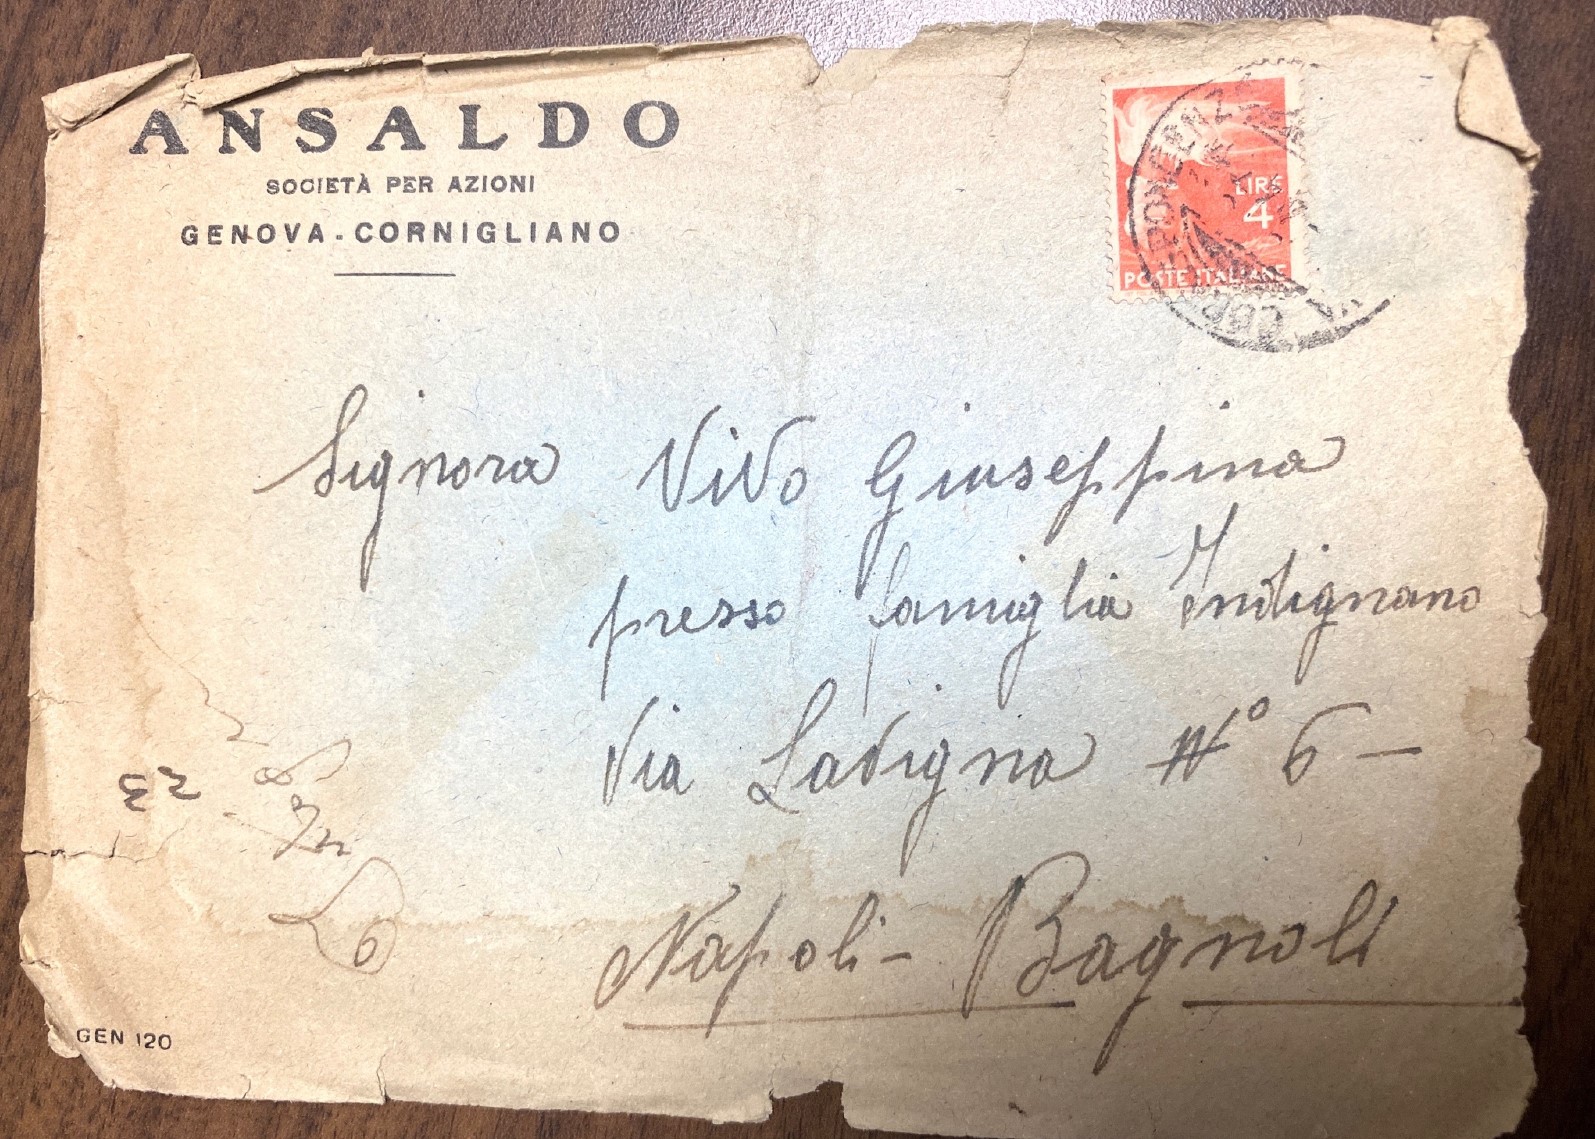 ANSALDO
SOCIETÀ PER AZIONI
GENOVA-CORNIGLIANO
LIRE
4
POSTE ITALIANE
Signora Vivo Giuseppina
presso famiglia Indignano
Via Ladigna N° 6 —
Napoli - Bagnoli
GEN 120